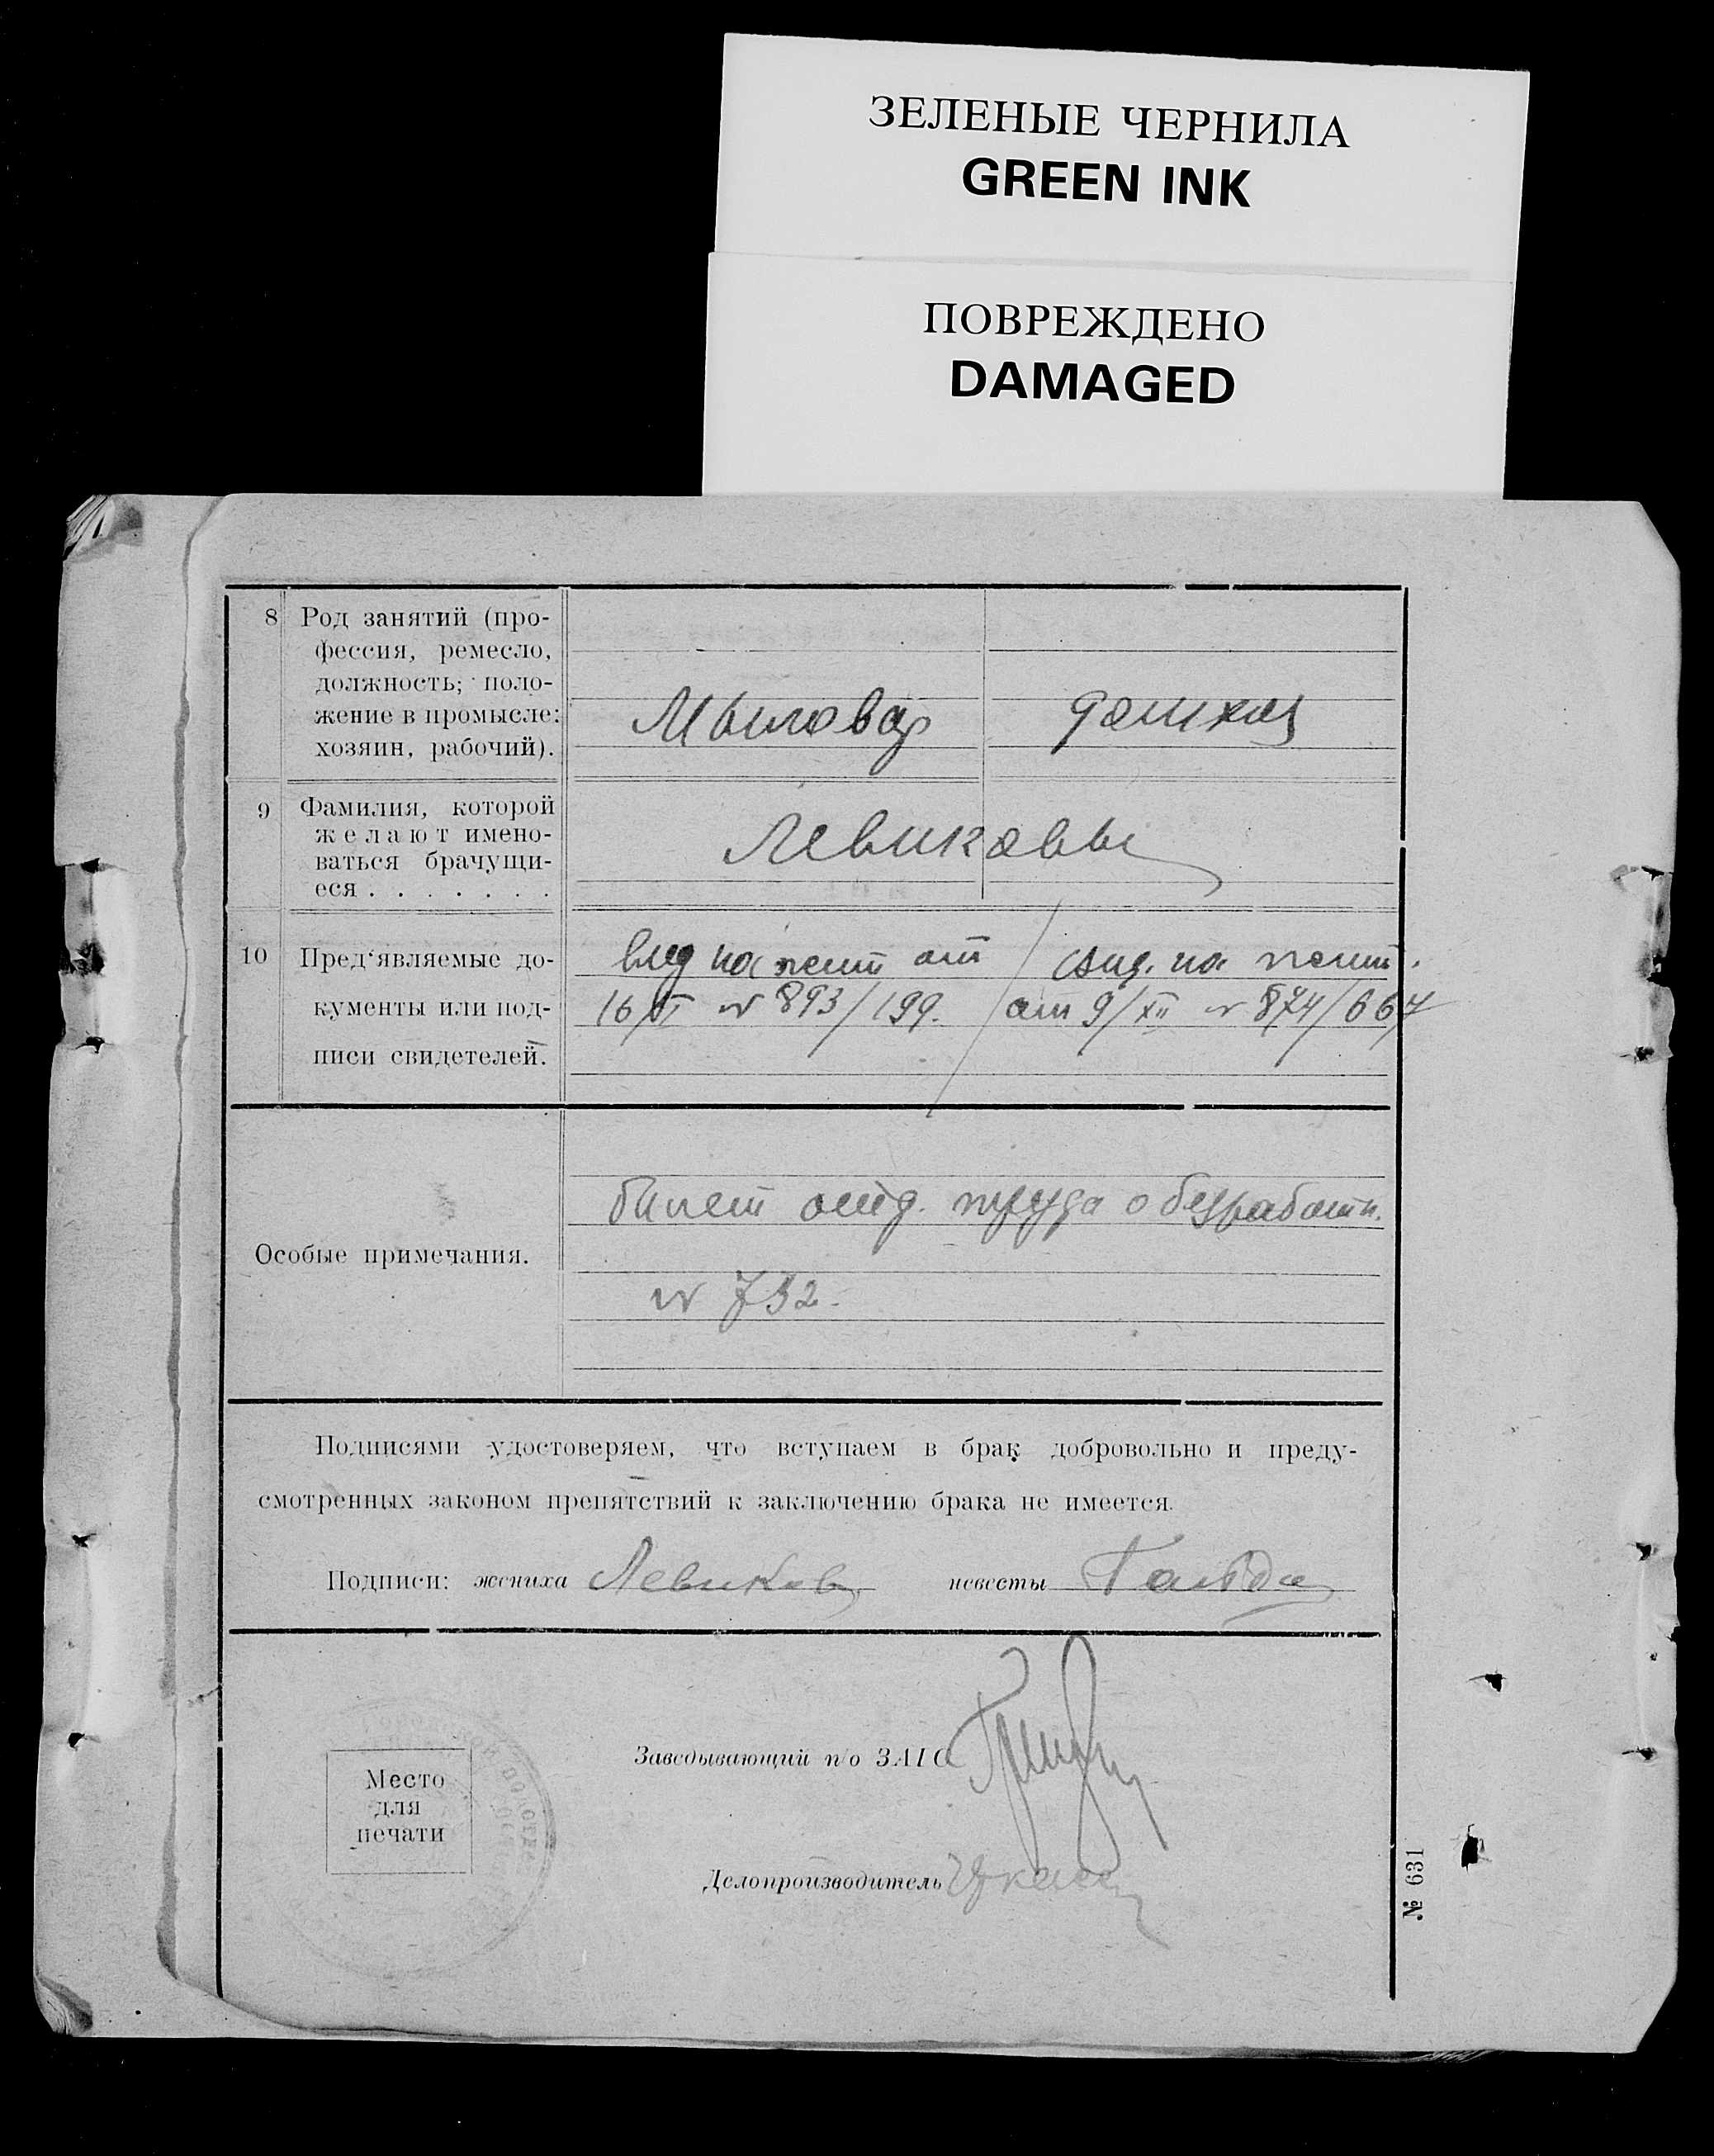 ЗЕЛЕНЫЕ ЧЕРНИЛА
GREEN INK
ПОВРЕЖДЕНО
DAMAGED
8 Род занятий (про-
фессия, ремесло,
должность; поло-
жение в промысле:
хозяин, рабочий).
Мыловар
9 Фамилия, которой
желают имено-
ваться брачущи-
еся . . . . . . .
Левиковы
10 Пред‘являемые до-
кументы или под-
писи свидетелей.
вид на жит от / свид. на жит.
16/VI № 893/199. / от 9/XII № 874/667
Особые примечания.
билет отд. труда о безработн.
№ 732.
Подписями удостоверяем, что вступаем в брак добровольно и преду-
смотренных законом препятствий к заключению брака не имеется.
Подписи: жениха Левиков невесты
Заведывающий п/о ЗАГС
Место
для
печати
Делопроизводитель
№ 631